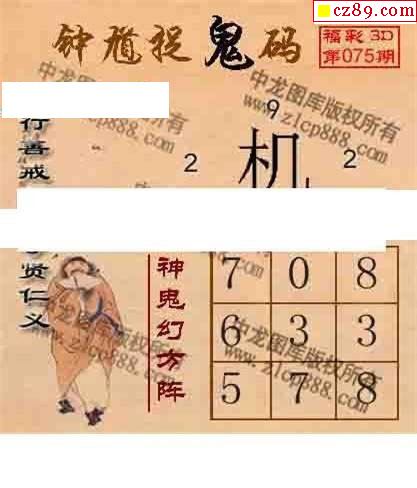 cz89.com
钟馗捉鬼码
福彩3D
第075期
中龙图库版权所有
www.zlcp888.com
9
2 机 2
行善戒
贤仁义
神鬼幻方阵
7 0 8
6 3 3
5 7 8
中龙图库版权所有
www.zlcp888.com